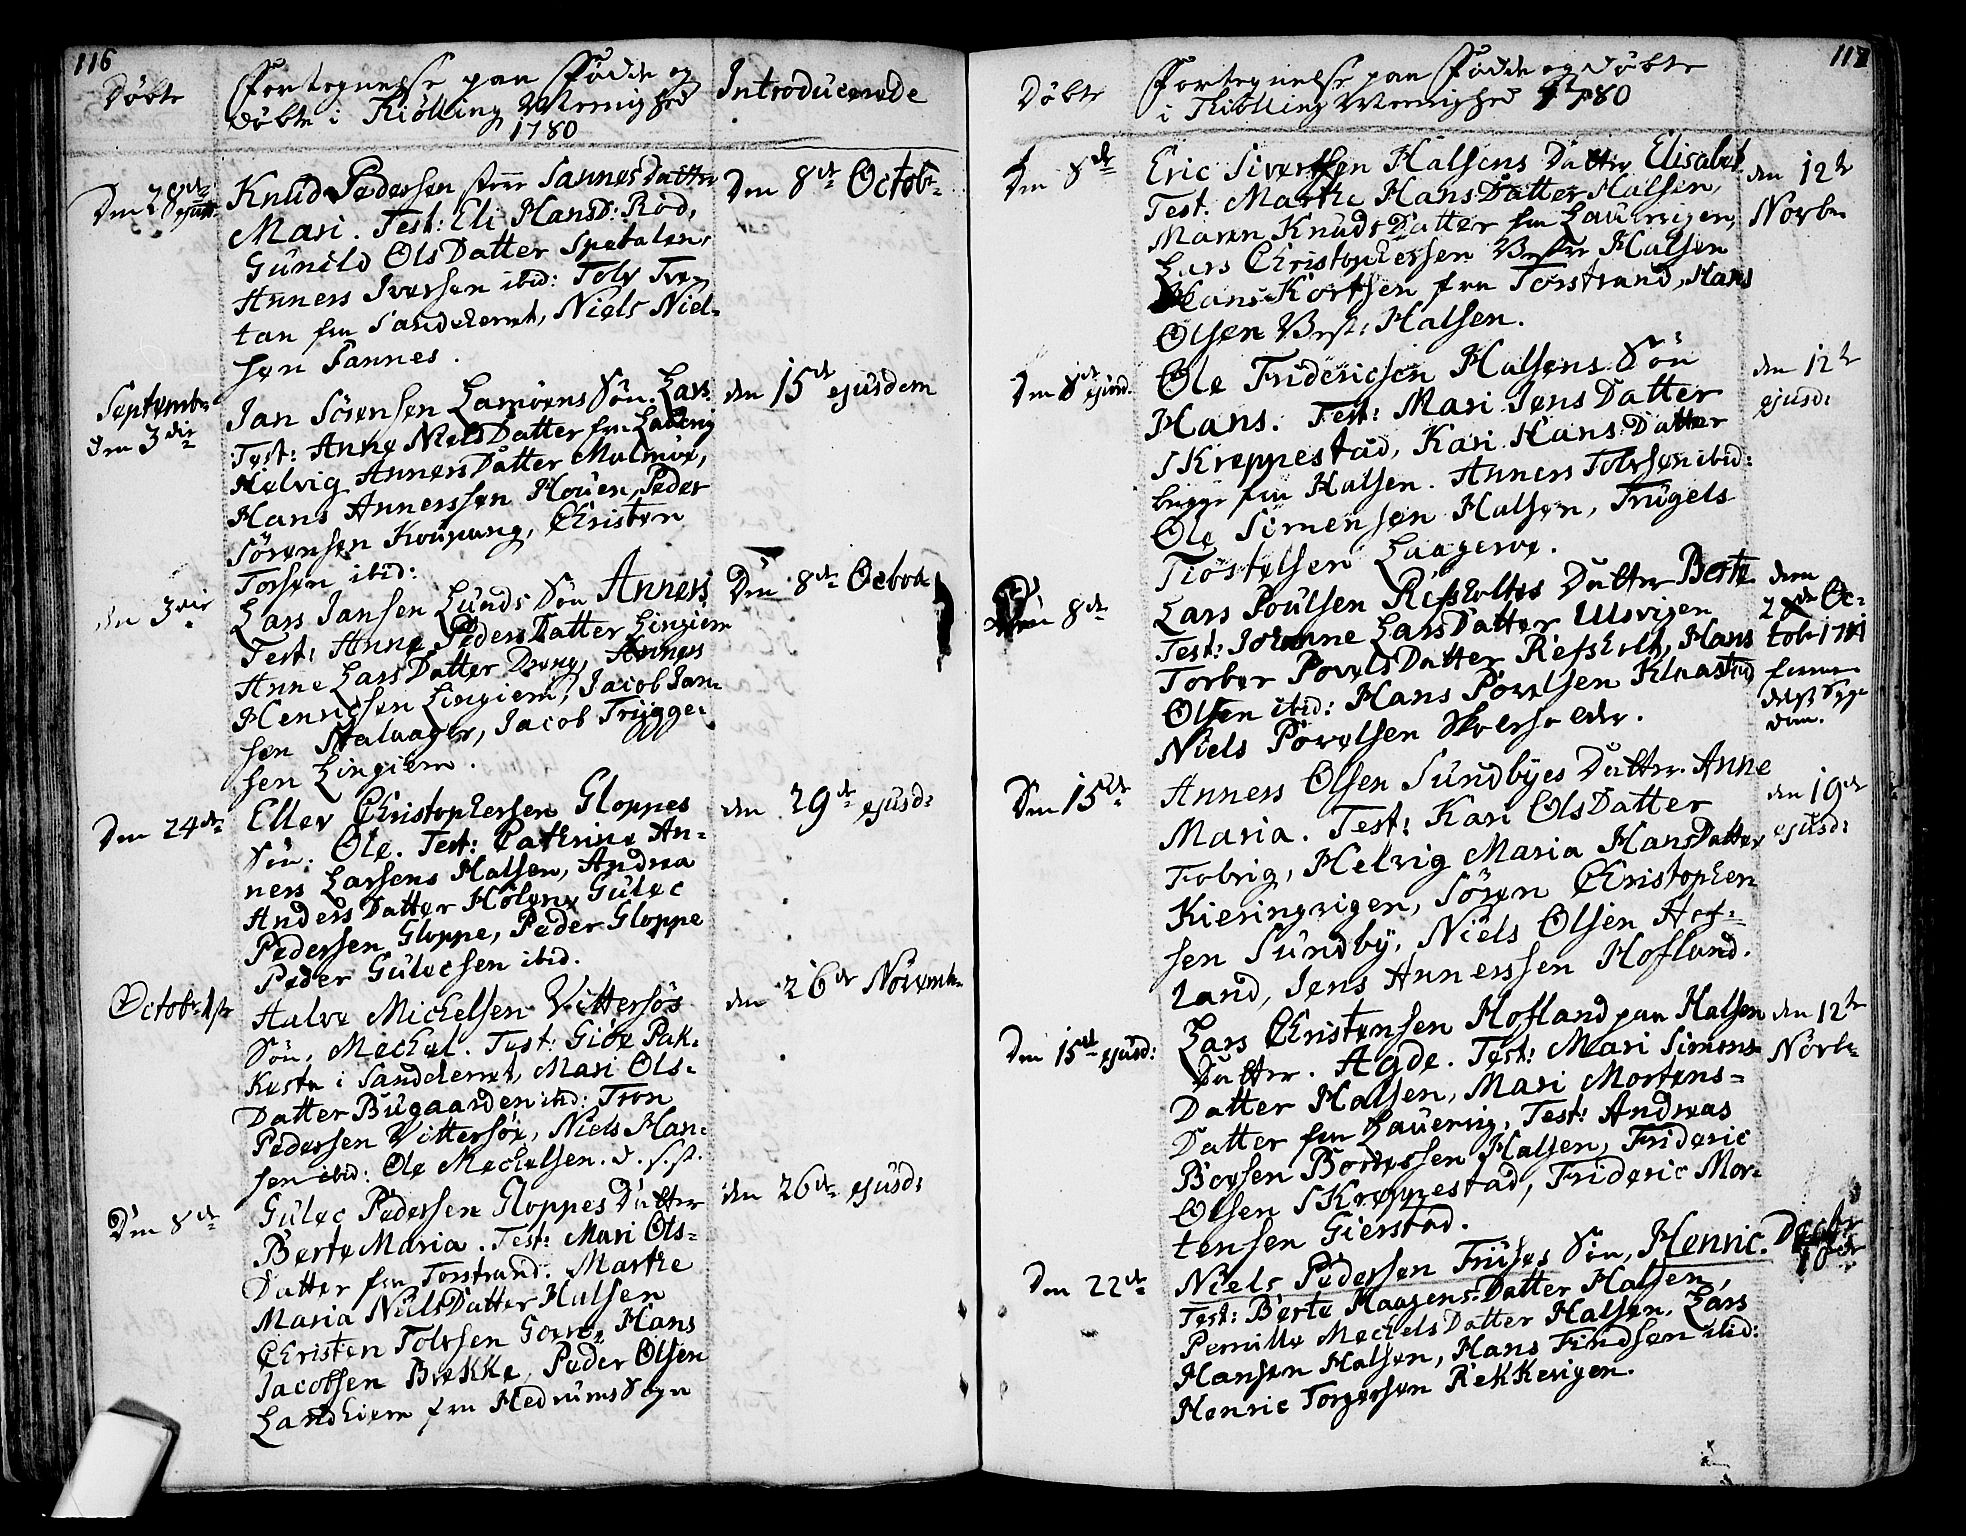 116
Døbte
Fortegnelse paa Fødde og
døbte i Tiølling Menighed
1780
Introducerede
Den 28de ejusd:
Knud Pedersen store Sannes Datter
Mari. Test: Eli HansD: Rød,
Gunild OlsDatter Spetalen,
Anners Iversen ibid: Tolv Tve-
tan fra Sandeherret, Niels Niel-
sen Sannes.
Den 8de Octobr
Septembr
den 3die
Jan Sörensen Lamöens Sön. Lars
Test: Anne NielsDatter fra Laurvig
Helvig AnnersDatter Malmöe,
Hans Annerssen Houen, Peder
Sørensen Koupang, Christen
Torsen ibid:
den 15de ejusdem
den 3die
Lars Jansen Lunds Søn Anners
Test: Anne PedersDatter Lingiem
Anne LarsDatter Anners
Henrichsen Lingiem, Jacob Jan-
sen Stalaager, Jacob Trygge-
sen Lingiem.
Den 8de Octobr
Den 24de
Ellev Christophersen Gloppes
Søn: Ole. Test: Cathrine An-
ners Larsens Halsen, Andrea
AndersDatter Holene Gulec
Pedersen Gloppe, Peder Gloppe
Peder Gulecsen ibid.
den 29de ejusd:
Octobr 1ste
Halvo Michelsen Vittersøs
Søn, Mechel. Test: Giöe Pak-
Keste i Sandeherret, Mari Ols-
Datter Bugaarden ibid: Tron
Pedersen Vittersøe, Niels Han-
sen ibid: Ole Mechelsen. d. s. st.
den 26de Novembr
Den 8de
Gulec Pedersen Gloppes Datter
Berte Maria. Test: Mari Ols-
Datter fra Torstrand. Marthe
Maria NielsDatter Halsen
Christen Tolvsen Gorre, Hans
Jacobsen Brekke, Peder Olsen
Landhiem fra Hedrums Sogn
den 26de ejusd:
117
Døbte
Fortegnelse paa Fødde og døbte
i Tiølling Menighed 1780
Den 8de
Eric Sivertsen Halsens Datter Elisabet
Test: Marthe HansDatter Halsen,
Maren KnudsDatter fra Laurvigen,
Lars Christophersen Vestre Halsen
Hans Kortsen fra Torstrand, Hans
Olsen Vest: Halsen.
den 12te
Novbr
Den 8de ejusd.
Ole Fridericsen Halsens Søn
Hans. Test: Mari JensDatter
SKreppestad, Kari HansDatter
begge fra Halsen. Anners Tolvsen ibid:
Ole Simensen Halsen, Trugels
Tiostelsen Laagerøe.
den 12te
ejusd:
Den 8de
Lars Poulsen Refsholtes Datter Berte
Test: Johanne LarsDatter Ulsvigen
Torber PovelsDatter Refsholt, Hans
Olsen ibid: Hans Povelsen Klaastad
Niels Povelsen Skoleholder.
den
28de Oc-
tobr 1781
formedelst Syg-
dom.
Den 15de
Anners Olsen Sundbyes Datter Anne
Maria. Test: Kari OlsDatter
Fobrig, Helvig Maria HansDatter
Kieringvigen, Sören Christophen
sen Sundby, Niels Olsen Hof-
Land, Jens Annerssen Hofland.
den 19de
ejusd:
Den 15de ejusd:
Lars Christensen Hofland paa Halsen
Datter. Agde. Test: Mari Simons-
Datter Halsen, Mari Mortens-
Datter fra Laurvig, Test: Andreas
Boysen Halsen, Frideric
Olsen SKreppestad, Frideric Mor-
tensen Gierstad.
den 12te
Novbr
Den 22de
Niels Pedersen Friises Søn, Henric.
Test: Berte HaagensDatter Halsen,
Pernille MechelsDatter Halsen, Lars
Hansen Halsen, Hans Findsen ibid:
Henric Torgersen Rekkevigen.
Decbr
10de